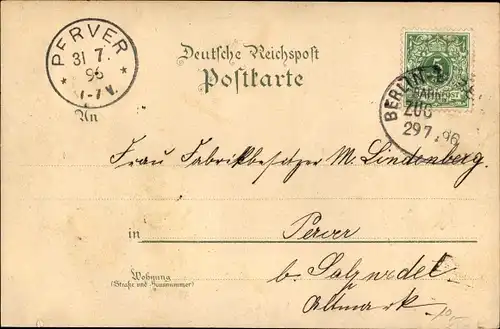 PERVER
31 7.
96
1-7V.
Deutsche Reichspost
Postkarte
5
BERLIN
BAHNPOST
ZUG
29 7 96
An
Frau Fabrikbesitzer M. Lindenberg.
in Perver
b. Salzwedel
Altmark
Wohnung
(Straße und Hausnummer)